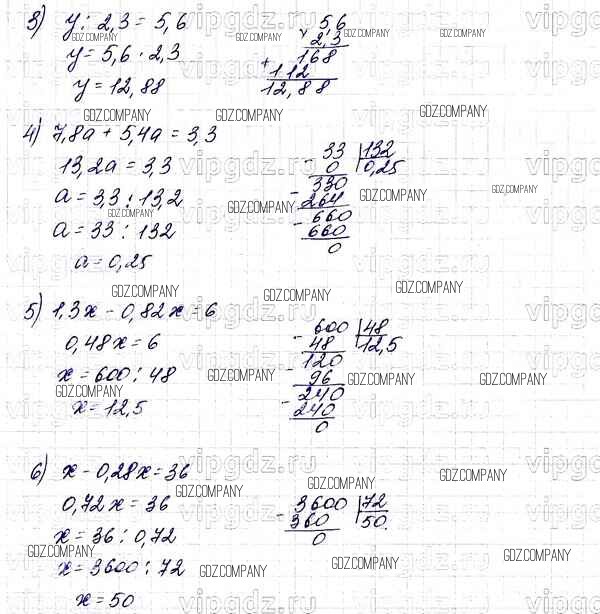 3) y : 2,3 = 5,6
y = 5,6 · 2,3
y = 12,88
× 5,6
2,3
168
+
112
12,88
4) 7,8a + 5,4a = 3,3
13,2a = 3,3
a = 3,3 : 13,2
a = 33 : 132
a = 0,25
33 | 132
- 0 | 0,25
330
- 264
660
- 660
0
5) 1,3x - 0,82x = 6
0,48x = 6
x = 600 : 48
x = 12,5
600 | 48
- 48 | 12,5
120
- 96
240
- 240
0
6) x - 0,28x = 36
0,72x = 36
x = 36 : 0,72
x = 3600 : 72
x = 50
3600 | 72
- 360 | 50.
0
GDZ.COMPANY
vipgdz.ru